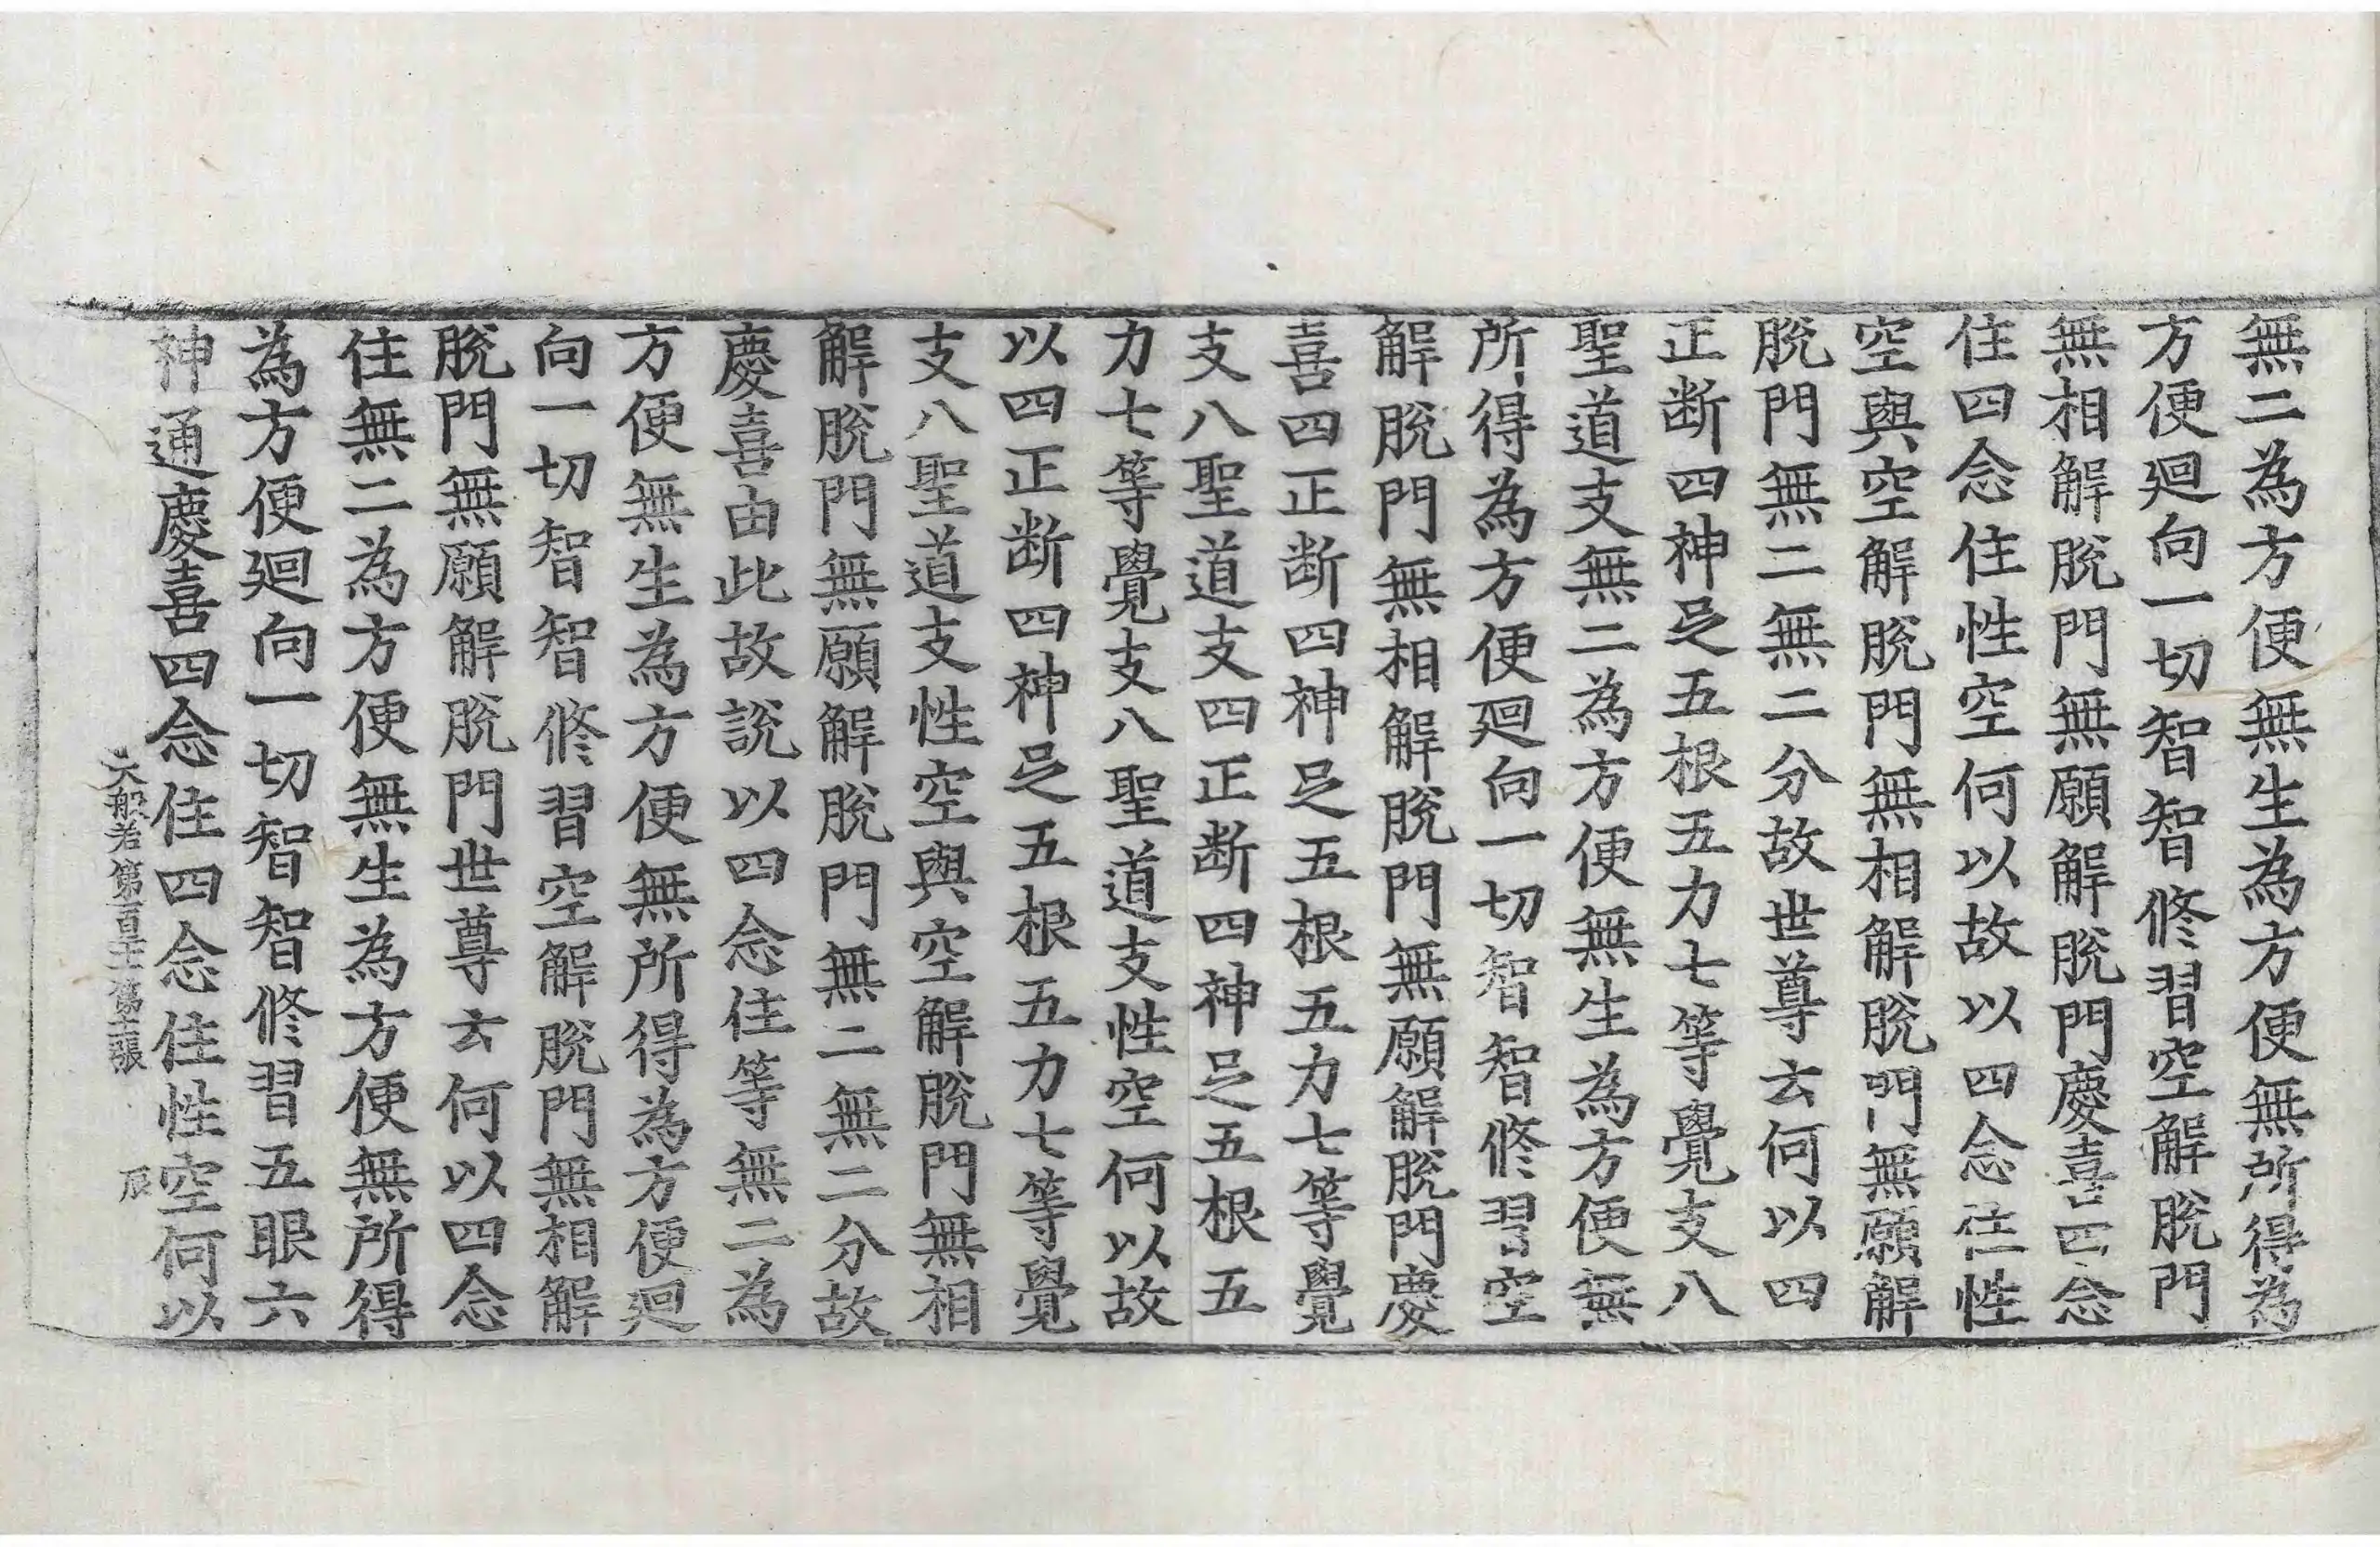 無二為方便無生為方便無所得為
方便迴向一切智智修習空解脫門
無相解脫門無願解脫門慶喜四念
住四念住性空何以故以四念住性
空與空解脫門無相解脫門無願解
脫門無二無二分故世尊云何以四
正断四神足五根五力七等覺支八
聖道支無二為方便無生為方便無
所得為方便迴向一切智智修習空
解脫門無相解脫門無願解脫門慶
喜四正断四神足五根五力七等覺
支八聖道支四正断四神足五根五
力七等覺支八聖道支性空何以故
以四正断四神足五根五力七等覺
支八聖道支性空與空解脫門無相
解脫門無願解脫門無二無二分故
慶喜由此故說以四念住等無二為
方便無生為方便無所得為方便迴
向一切智智修習空解脫門無相解
脫門無願解脫門世尊云何以四念
住無二為方便無生為方便無所得
為方便迴向一切智智修習五眼六
神通慶喜四念住四念住性空何以
大般若第百十第張 辰